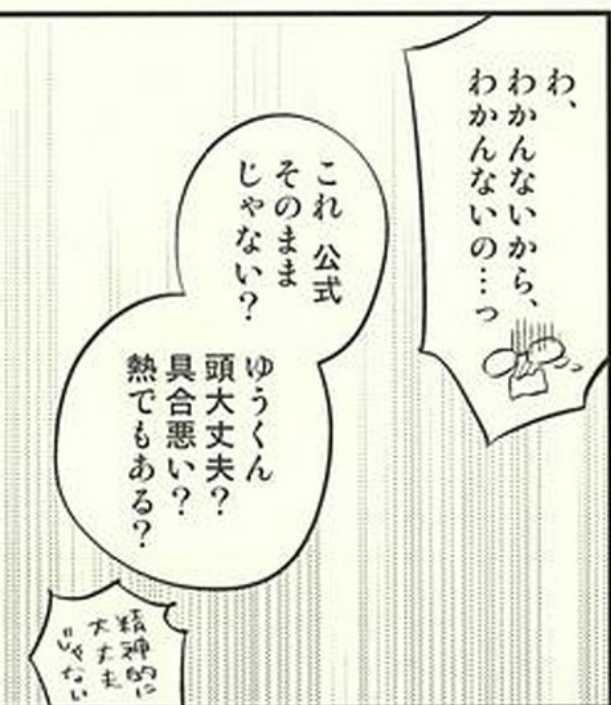 わ、
わかんないから、
わかんないの…っ
これ 公式
そのまま
じゃない?
ゆうくん
頭大丈夫?
具合悪い?
熱でもある?
精神的に
大丈夫
じゃない